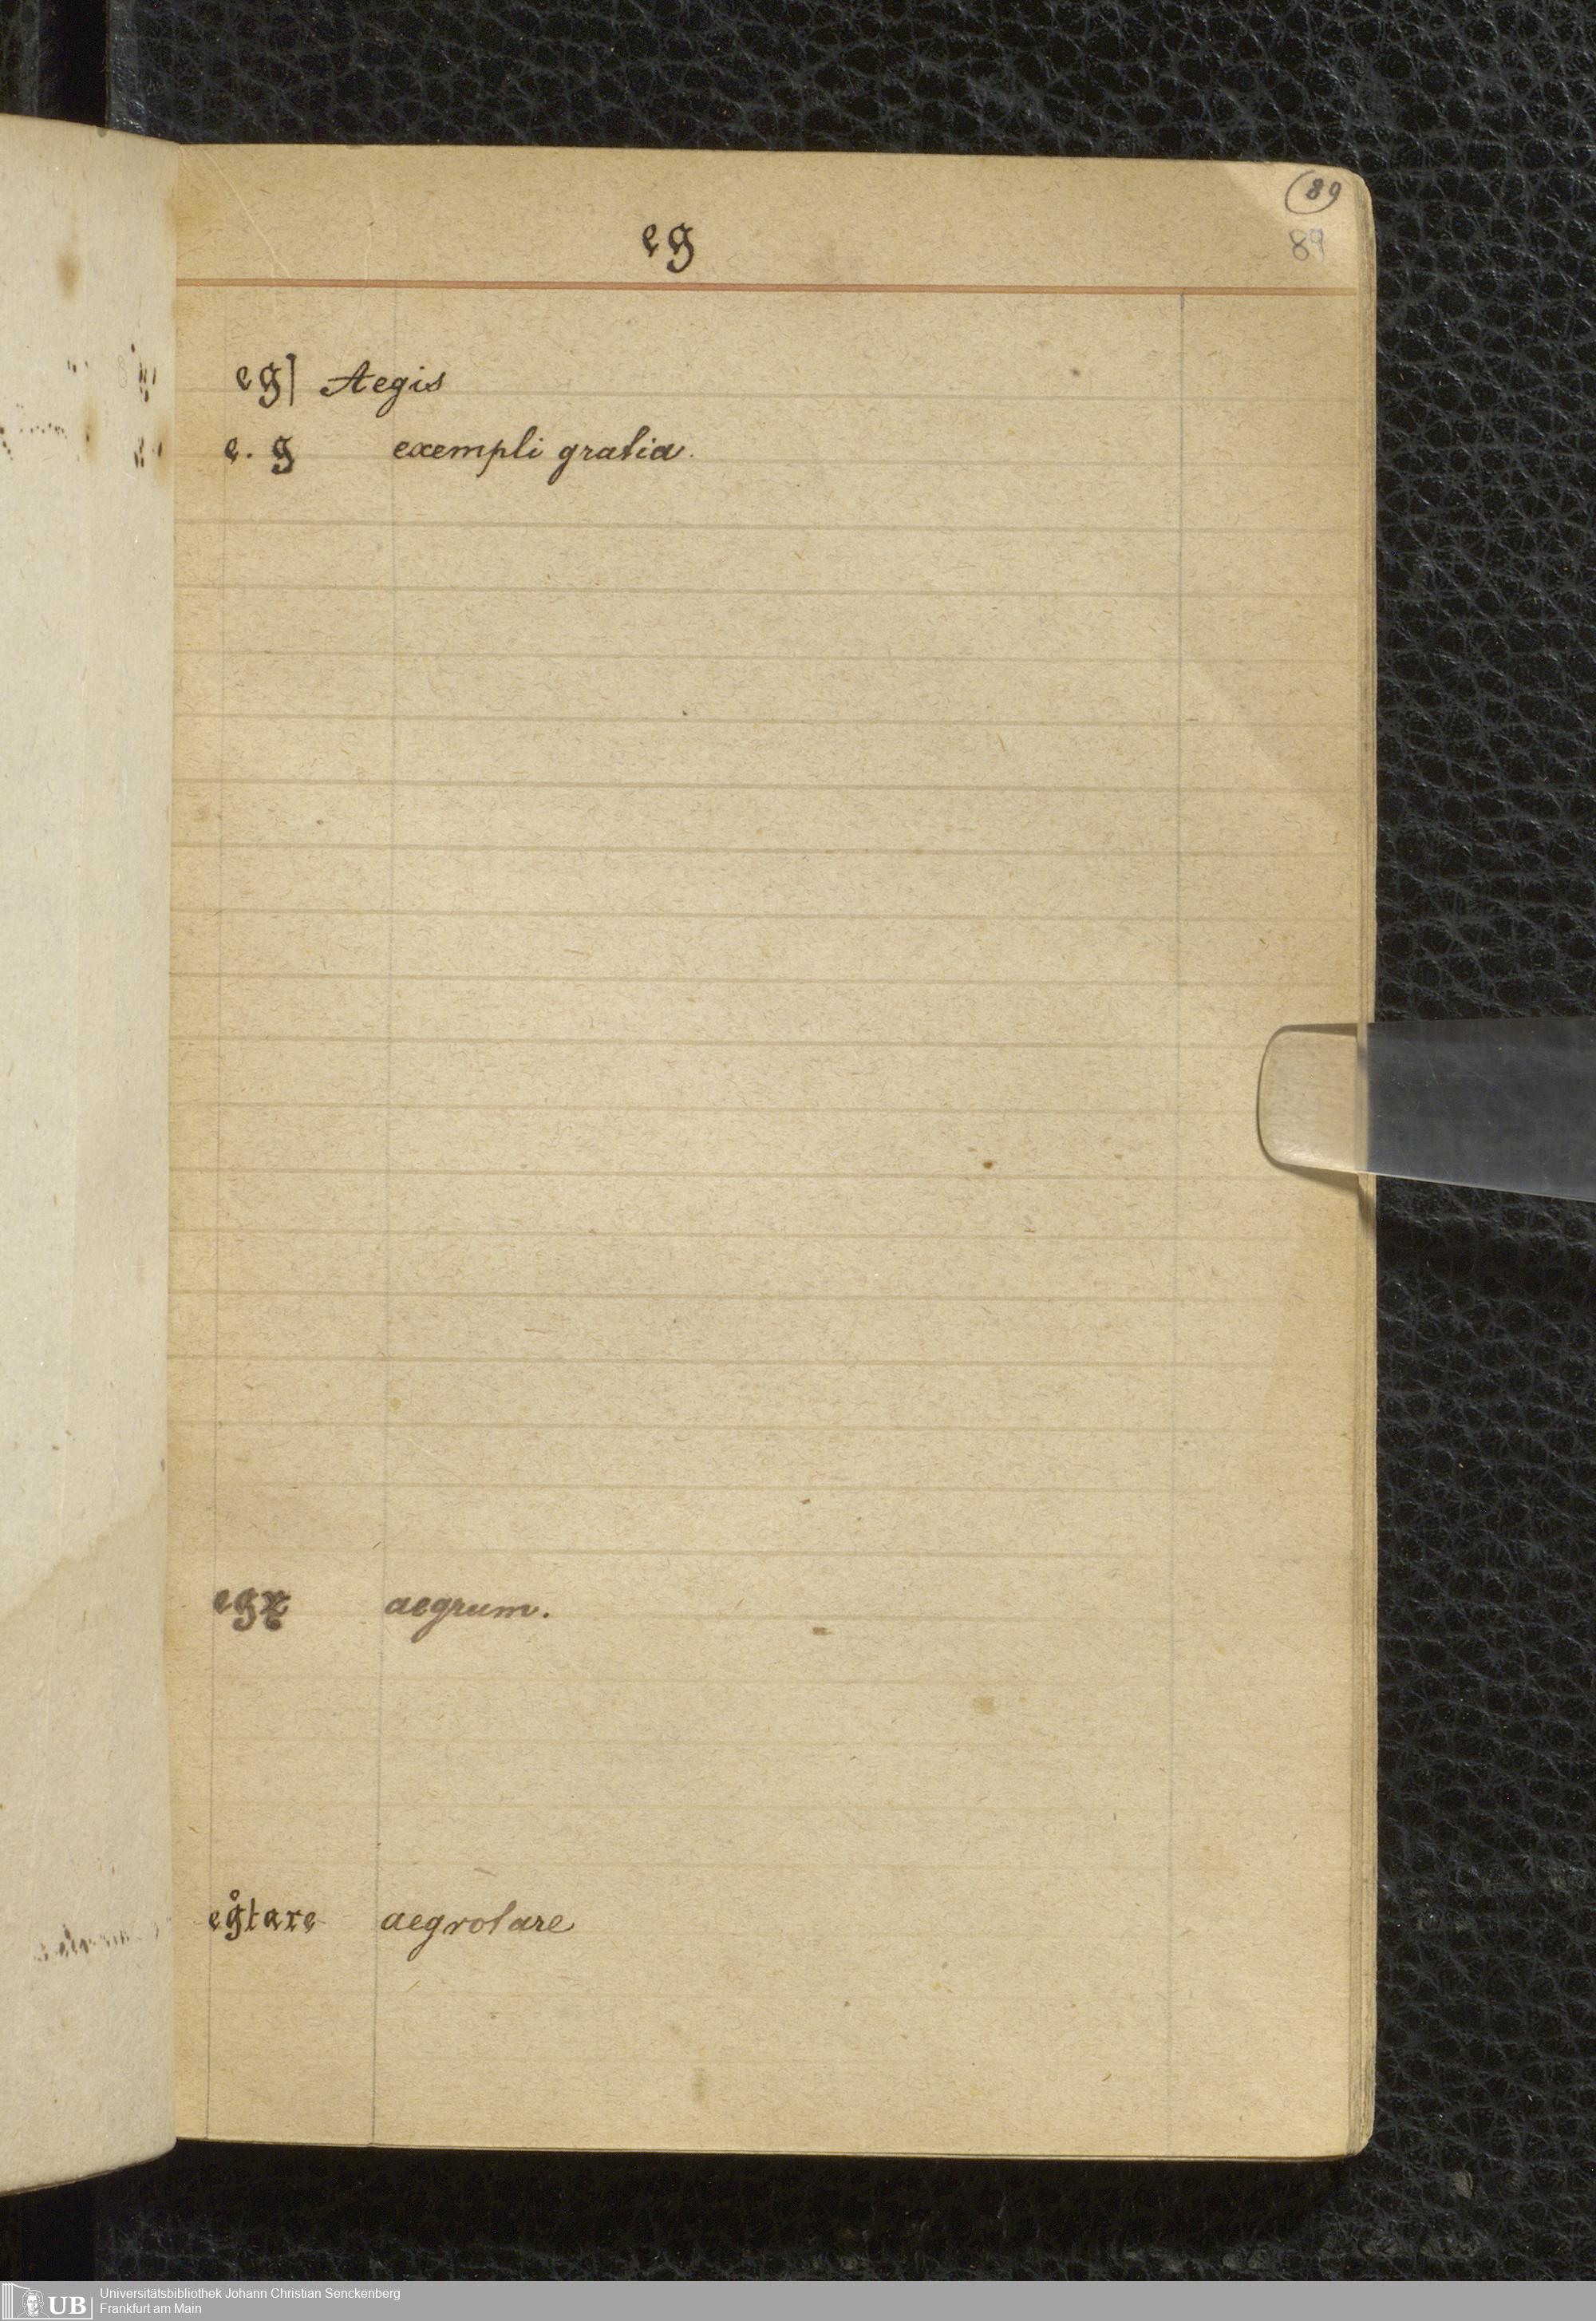 89
89
eg
eg] Aegis
e. g exempli gratia.
egꝝ aegrum.
eg̊tare aegrotare
UB Universitätsbibliothek Johann Christian Senckenberg
Frankfurt am Main